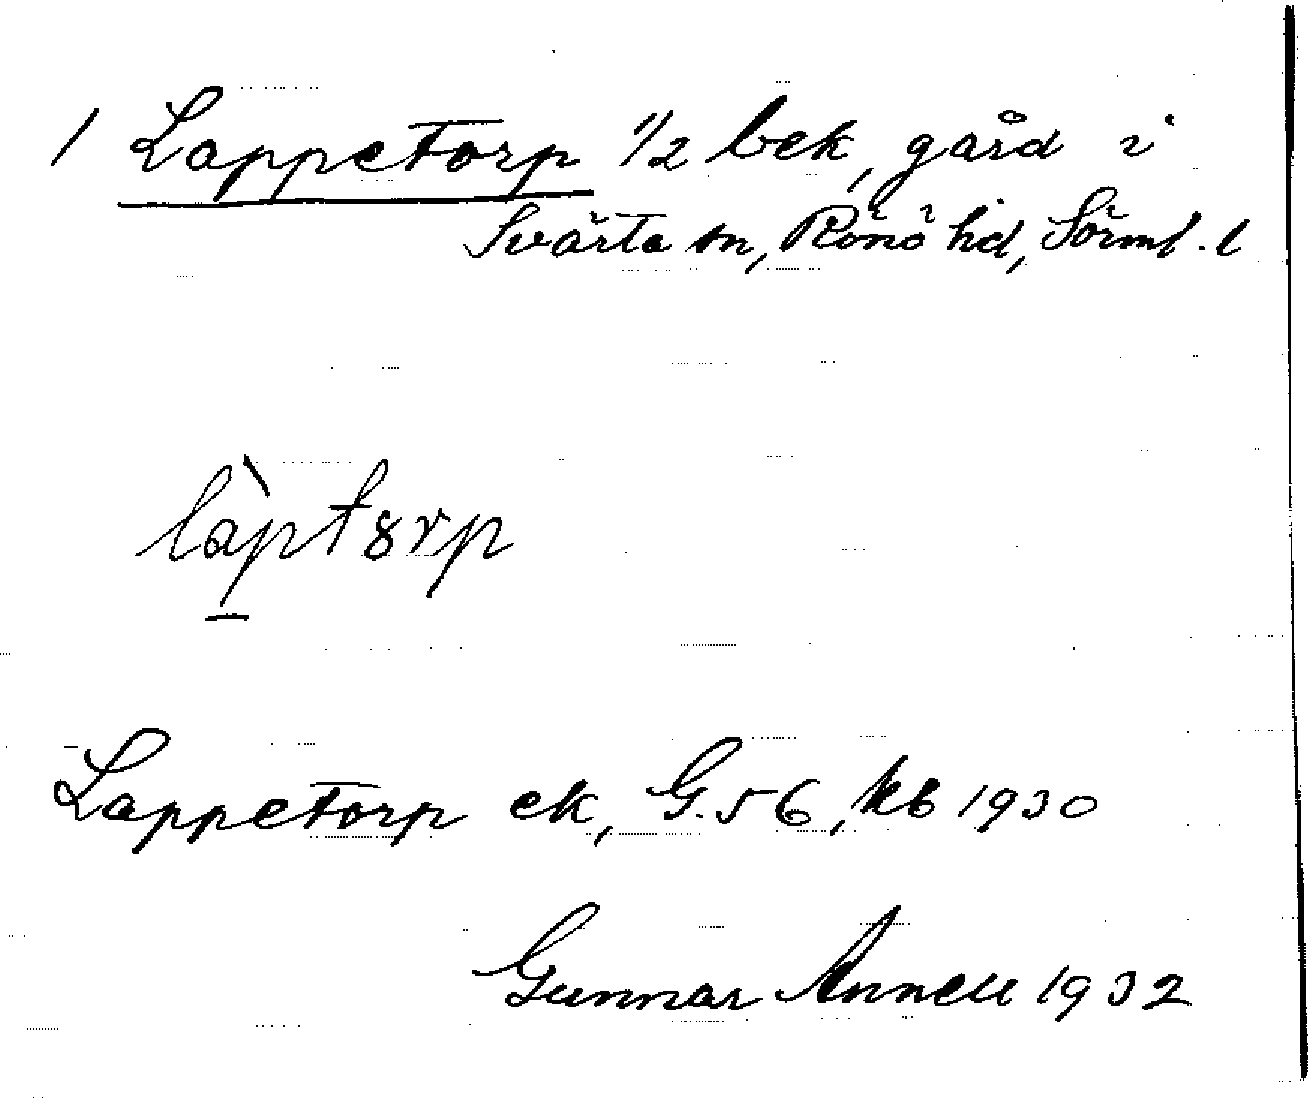 1 Lappetorp 1/2 bek, gård i
Svärta sn, Rönö hd, Sörml. l
làptɞrp
Lappetorp ek, G. 56, kb 1930
Gunnar Annell 1932